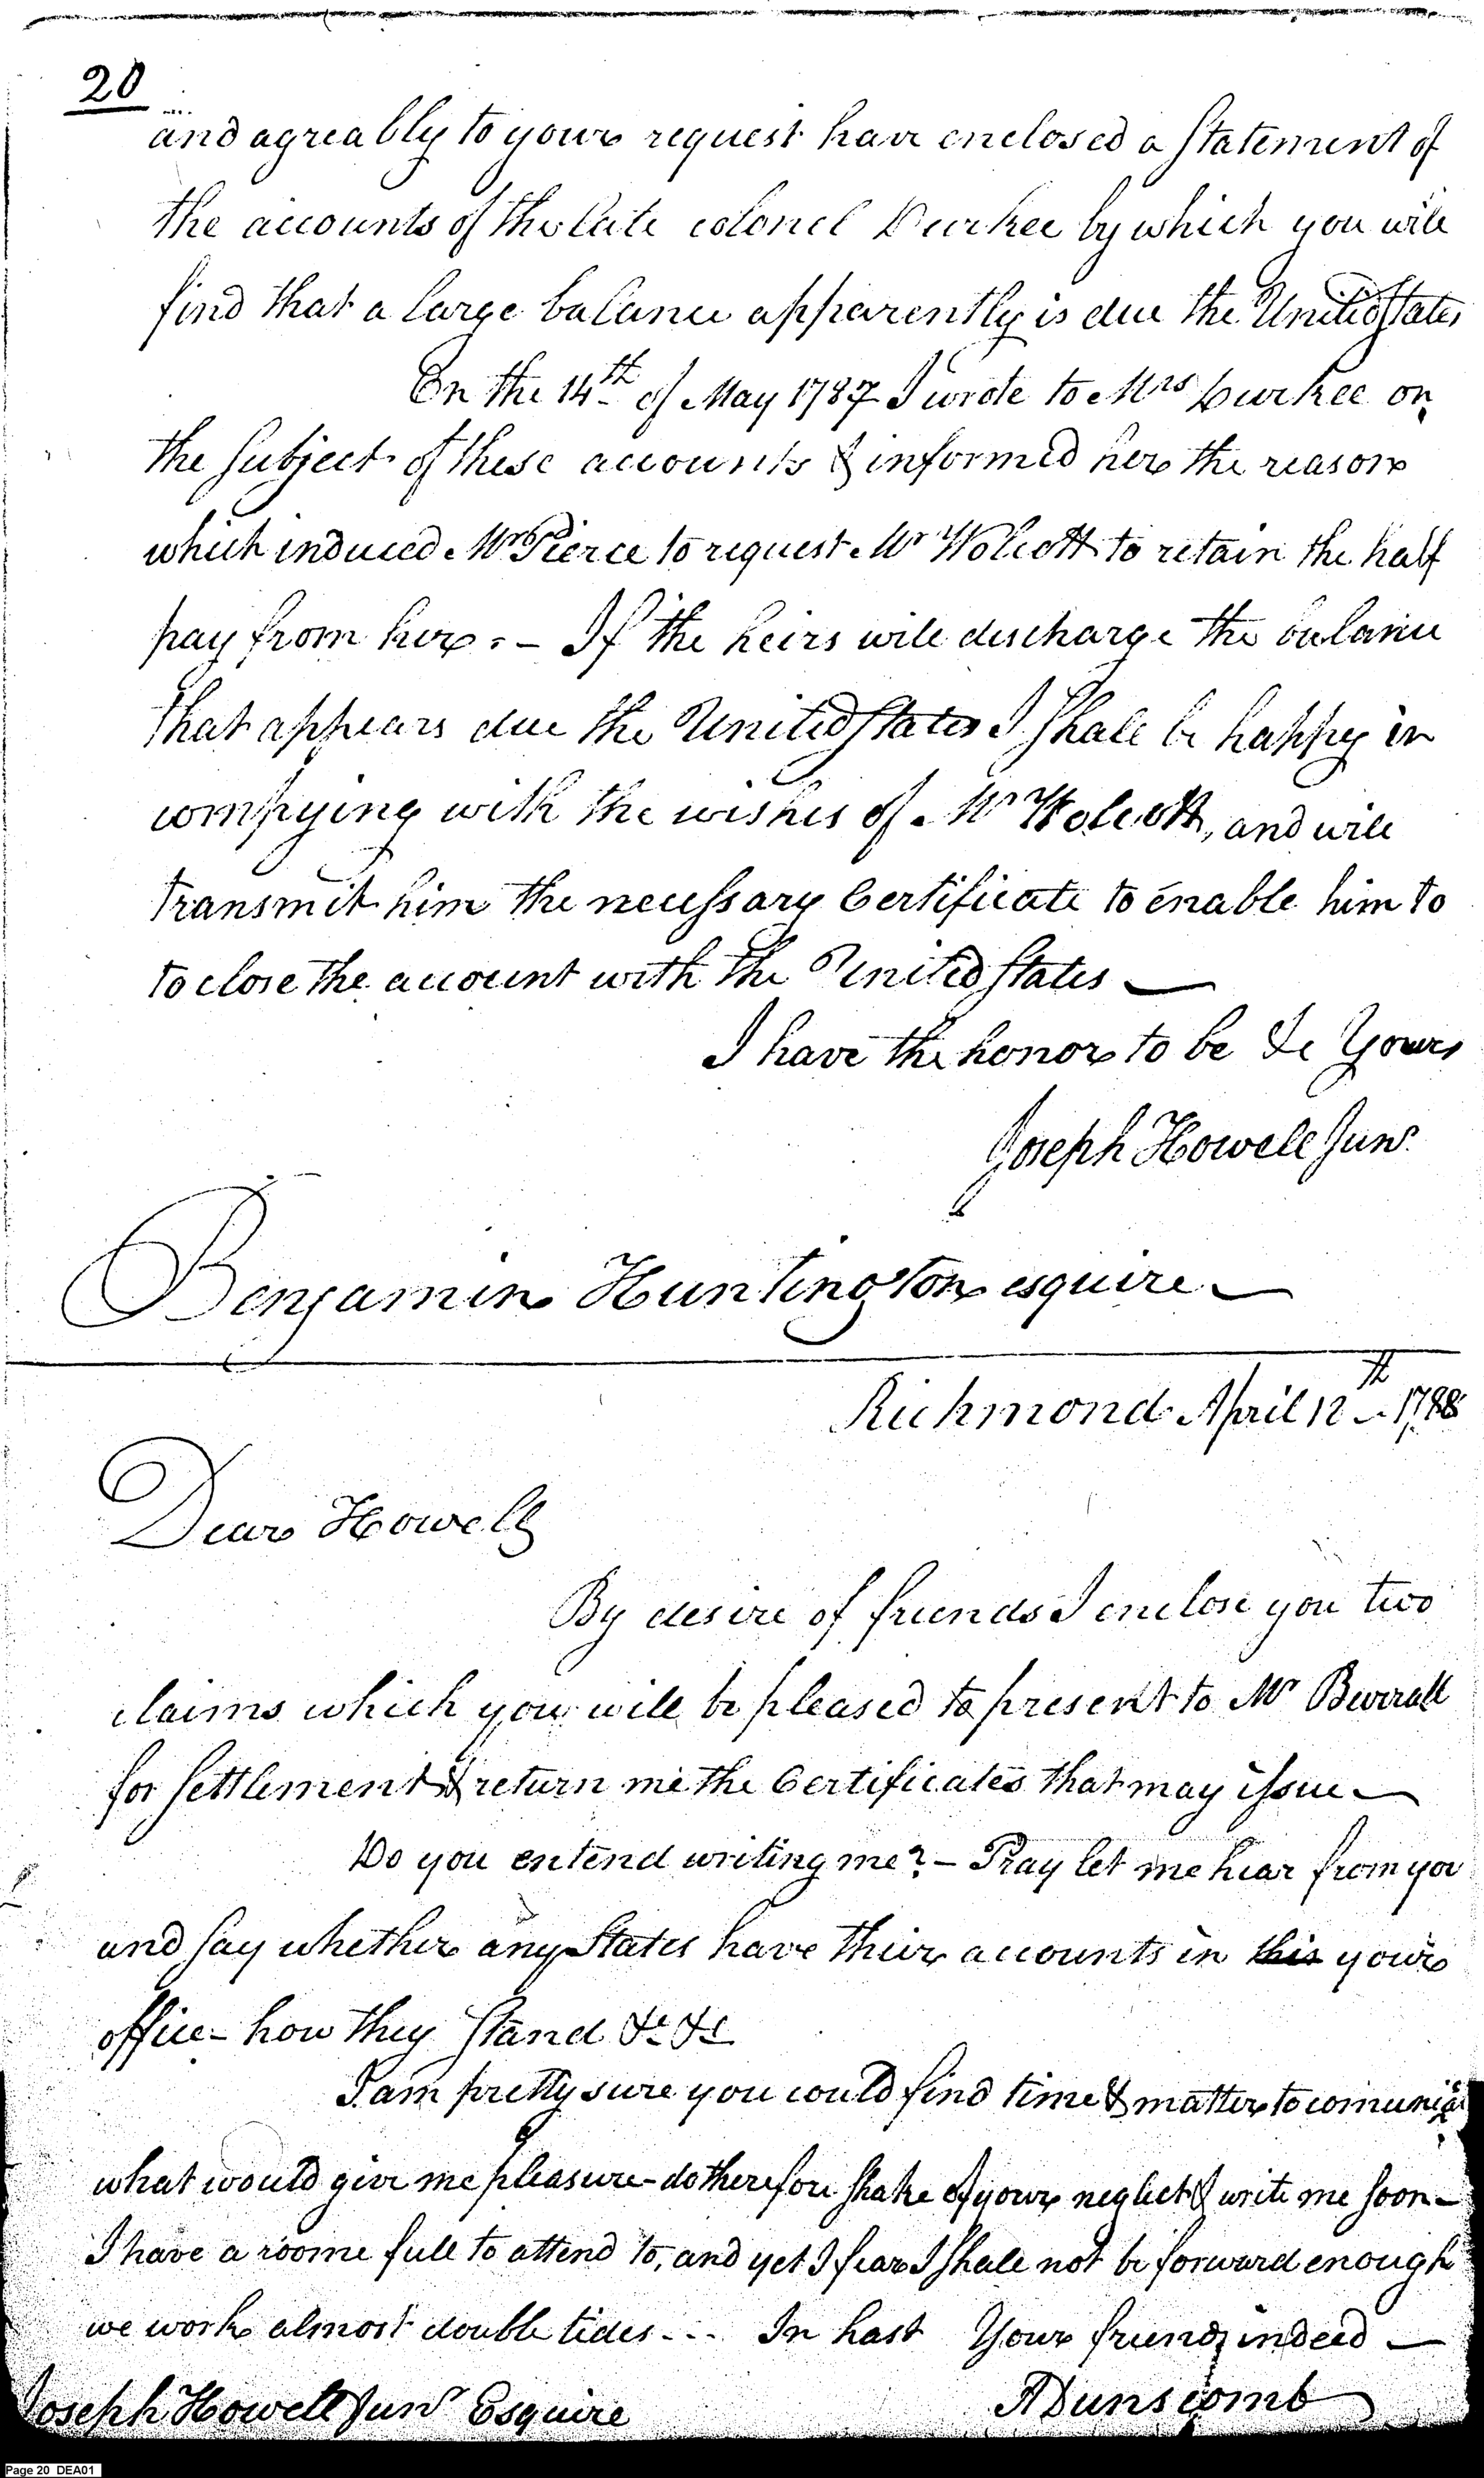 20
and agreably to your request have enclosed a Statement of
the accounts of the late colonel Durkee by which you will
find that a large balance apparently is due the United States
On the 14th of May 1787 I wrote to Mrs Durkee on
the Subject of these accounts & informed her the reason
which induced Mr Pierce to request Mr Wolcott to retain the half
pay from her. – If the heirs will discharge the balance
that appears due the United States I Shall be happy in
complying with the wishes of Mr Wolcott, and will
transmit him the necessary Certificate to enable him to
to close the account with the United States —
I have the honor to be &c Yours
Joseph Howell Junr.
Benjamin Huntington esquire —
Richmond April 12th 1788
Dear Howell
By desire of friends I enclose you two
claims which you will be pleased to present to Mr Burrall
for Settlement & return me the Certificates that may issue —
Do you entend writing me? – Pray let me hear from you
and say whether any States have their accounts in this your
office – how they Stand &c &c
I am pretty sure you could find time & matter to comunicat
what would give me pleasure – do therefore Shake of your neglect & write me soon –
I have a roome full to attend to, and yet I fear I Shall not be forward enough
we work almost double tides - - - In hast Your friend indeed —
A Dunscomb
Joseph Howell Junr Esquire
Page 20 DEA01